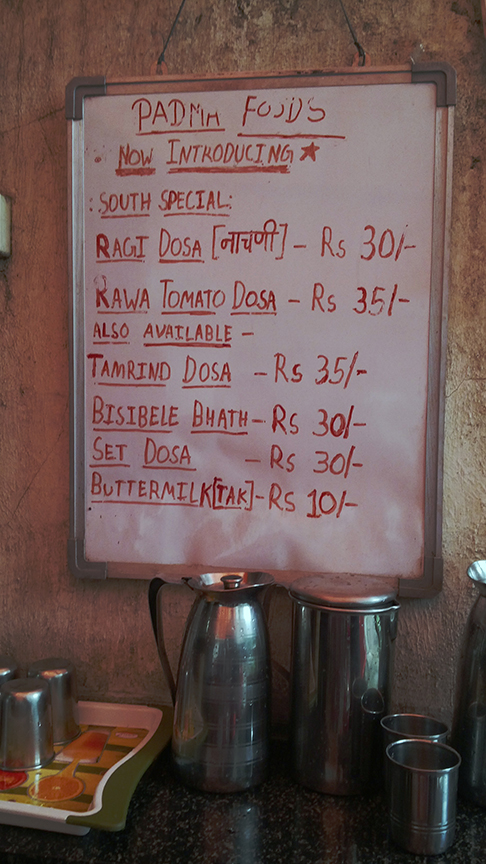 PADMA FOODS
NOW INTRODUCING ★
: SOUTH SPECIAL:
RAGI DOSA [नाचणी] - Rs 30/-
RAWA TOMATO DOSA - Rs 35/-
ALSO AVAILABLE -
TAMRIND DOSA - Rs 35/-
BISIBELE BHATH - Rs 30/-
SET DOSA - Rs 30/-
BUTTERMILK[TAK] - Rs 10/-